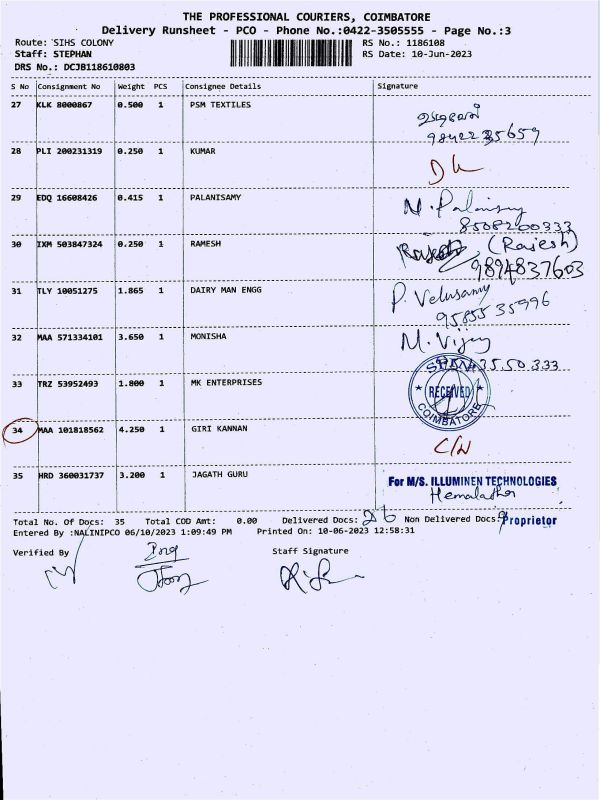 THE PROFESSIONAL COURIERS, COIMBATORE
Delivery Runsheet - PCO - Phone No.:0422-3505555 - Page No.:3
Route: SIHS COLONY RS No.: 1186108
Staff: STEPHAN RS Date: 10-Jun-2023
DRS No.: DCJB118610803
S No Consignment No Weight PCS Consignee Details Signature
27 KLK 8000867 0.500 1 PSM TEXTILES
28 PLI 200231319 0.250 1 KUMAR
29 EDQ 16608426 0.415 1 PALANISAMY N. Palanisamy
8508200333
30 IXM 503847324 0.250 1 RAMESH (Rajesh)
9894837603
31 TLY 10051275 1.865 1 DAIRY MAN ENGG P. Velusamy
95855 35996
32 MAA 571334101 3.650 1 MONISHA M. Vijay
33 TRZ 53952493 1.800 1 MK ENTERPRISES
RECEIVED
COIMBATORE
34 MAA 101818562 4.250 1 GIRI KANNAN C/N
35 HRD 360031737 3.200 1 JAGATH GURU For M/S. ILLUMINEN TECHNOLOGIES
Hemalatha
Proprietor
Total No. Of Docs: 35 Total COD Amt: 0.00 Delivered Docs: 26 Non Delivered Docs: 9
Entered By :NALINIPCO 06/10/2023 1:09:49 PM Printed On: 10-06-2023 12:58:31
Verified By Staff Signature